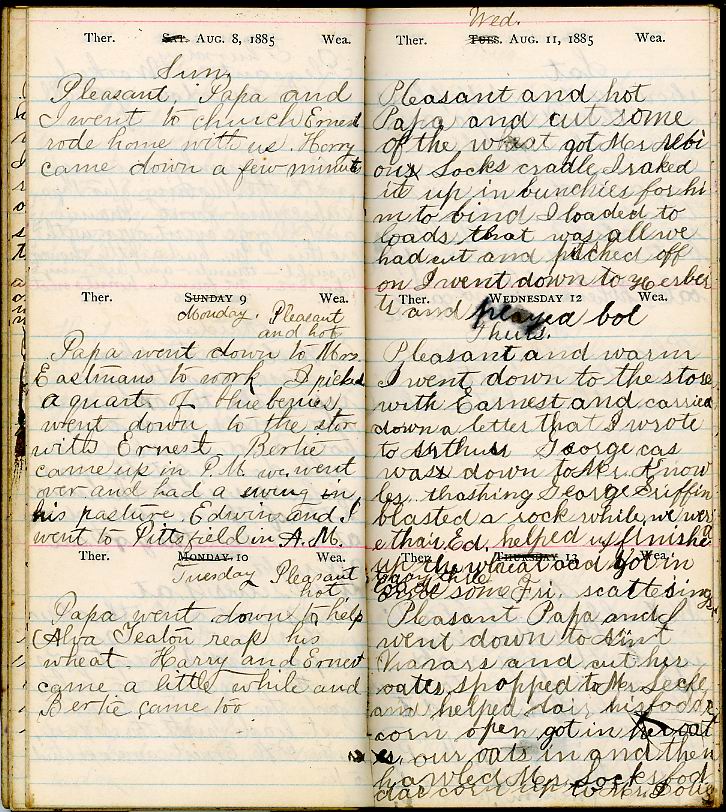 Ther. Sat. Aug. 8, 1885 Wea.
Sun,
Pleasant Papa and
I went to church Ernest
rode home with us. Harry
came down a few minute
Ther. Sunday 9 Wea.
Monday. Pleasant
and hot
Papa went down to Mrs.
Eastmans to work I picked
a quart of blueberries
went down to the stor
with Ernest Bertie
came up in P.M. we went
over and had a swing in
his pasture, Edwin and I
went to Pittsfield in A.M.
Ther. Monday 10 Wea.
Tuesday Pleasant
hot
Papa went down to help
Alva Teaton reap his
wheat. Harry and Ernest
came a little while and
Bertie came too
Wed.
Ther. Tues. Aug. 11, 1885 Wea.
Pleasant and hot
Papa and cut some
of the wheat got Mr
Socks cradle I raked
it up in bunchies for hi
m to bind I loaded to
loads that was all we
had cut and pitched off
on I went down to Herber
ts and played bol
Ther. Wednesday 12 Wea.
Thurs.
Pleasant and warm
I went down to the store
with Earnest and carried
down a letter that I wrote
to Arthur George cas
was down to Mr. Know
les thrashing George Griffin
blasted a rock while we wer
e thair Ed. helped us finishe
up the wheat and got in
Ther. Thursday 13 Wea.
some Fri. scattering
Pleasant Papa and I
went down to Aunt
and cut her
oats, stopped to Mr Locke
and helped his foddr
corn open got in her oat
s, our oats in and then
hawled Mr. Socks fod
dar corn up to Mr.